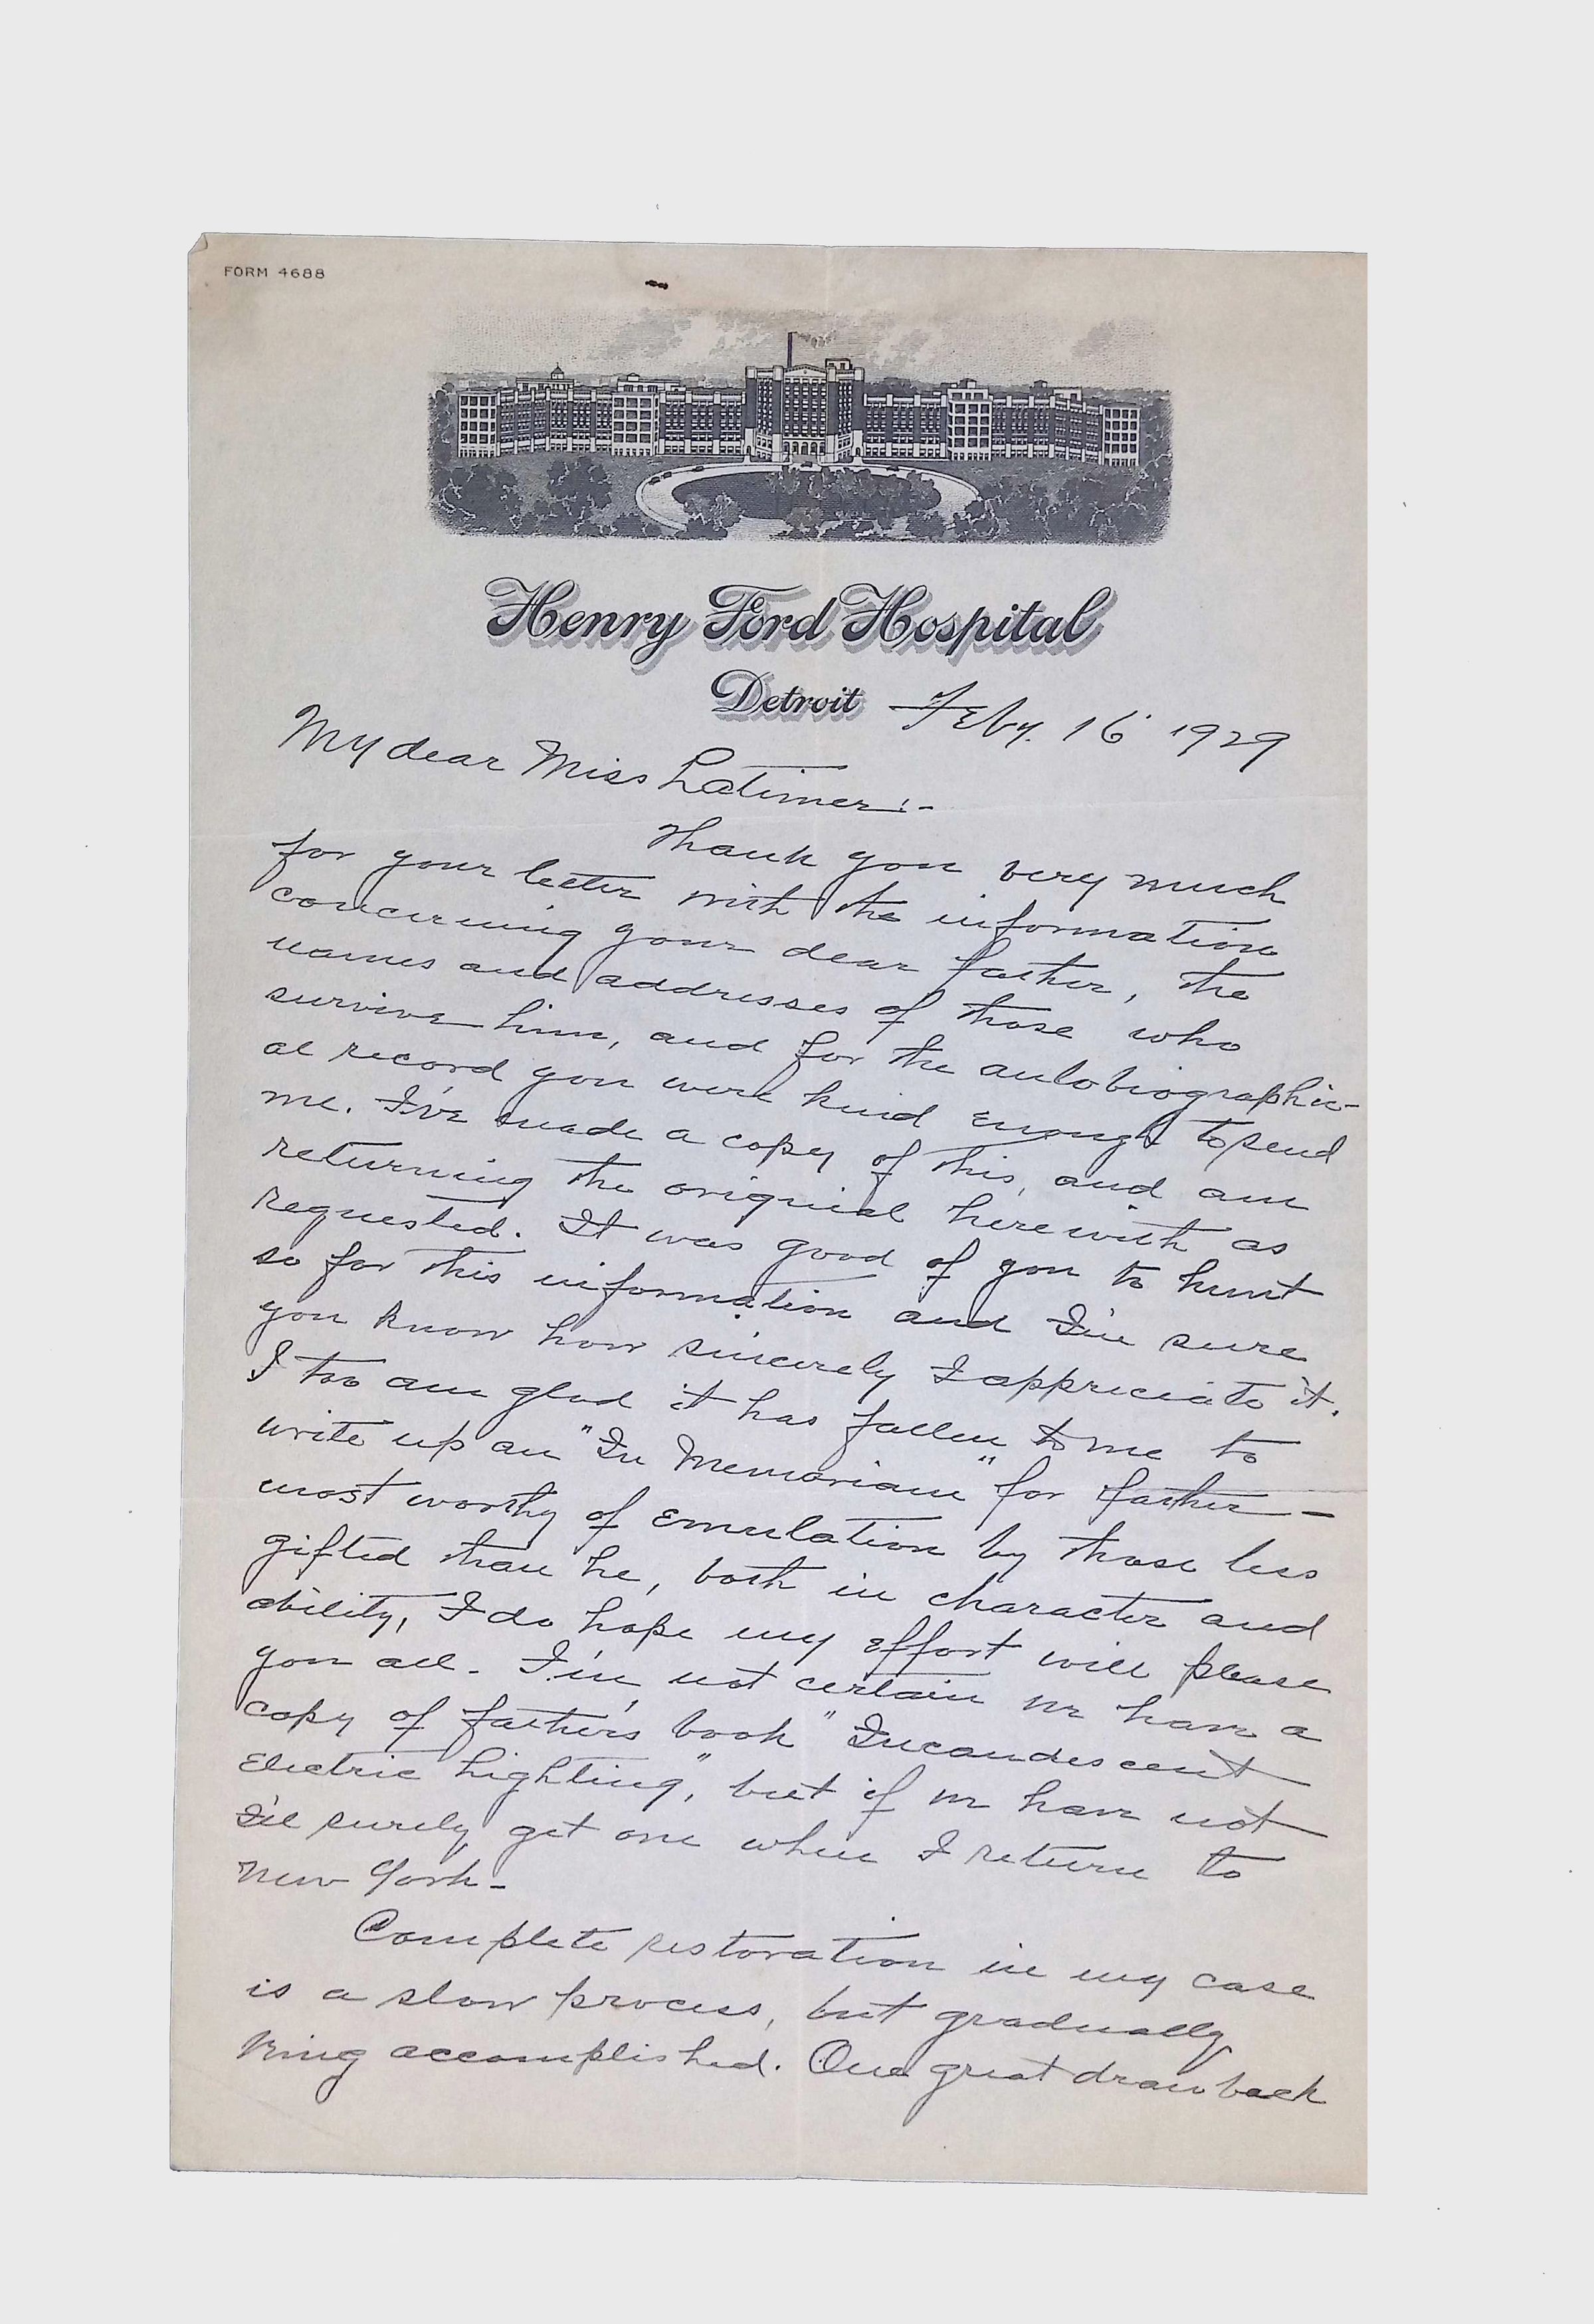 FORM 4688
Henry Ford Hospital
Detroit Feby. 16 1929
My dear Miss Latimer:-
Thank you very much
for your letter with the information
concerning your dear father, the
names and addresses of those who
survive him, and for the autobiographic-
al record you were kind enough to send
me. I've made a copy of this, and am
returning the original herewith as
requested. It was good of you to hunt
so for this information and I'm sure
you know how sincerely I appreciate it.
I too am glad it has fallen to me to
write up an "In Memoriam" for father -
most worthy of emulation by those less
gifted than he, both in character and
ability, I do hope my effort will please
you all. I'm not certain we have a
copy of father's book "Incandescent
Electric Lighting", but if we have not
I'll surely get one when I return to
New York-
Complete restoration in my case
is a slow process, but gradually
being accomplished. One great drawback